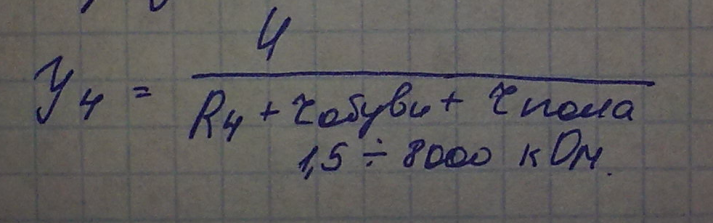 У
У₄ =
R₄ + rобуви + rпола
1,5 ÷ 8000 кОм.